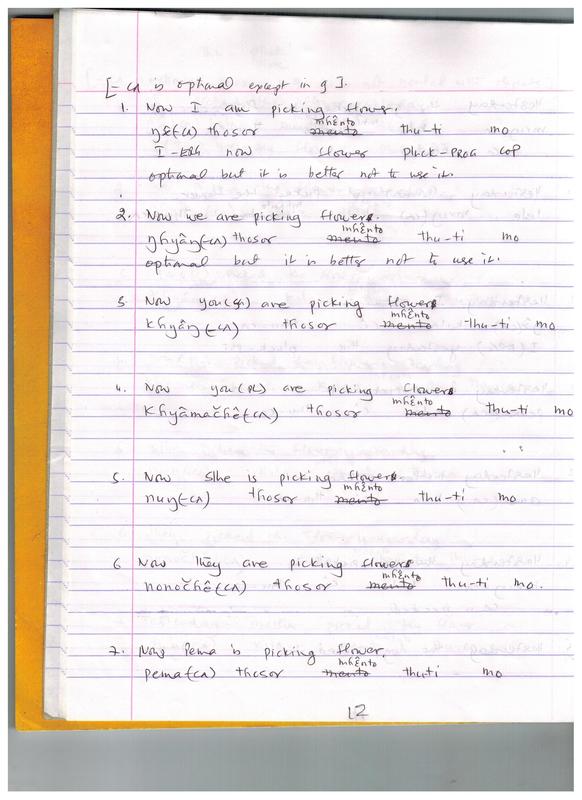 [-cʌ is optional except in 9].
1. Now I am picking flower.
mhɛ̂nto
ŋɛ(-cʌ) thosor mento thu-ti mo
I-ERG now flower pluck-PROG COP
optional but it is better not to use it.
2. Now we are picking flowers.
mhɛ̂nto
ŋhyâŋ(-cʌ) thosor mento thu-ti mo
optional but it is better not to use it.
3. Now you(sg) are picking flowers
mhɛ̂nto
khyâŋ(-cʌ) thosor mento thu-ti mo
4. Now you(PL) are picking flowers
mhɛ̂nto
Khyâmačhê(-cʌ) thosor mento thu-ti mo
5. Now s/he is picking flowers
mhɛ̂nto
nuŋ(-cʌ) thosor mento thu-ti mo
6 Now They are picking flowers
mhɛ̂nto
nonočhê(-cʌ) thosor mento thu-ti mo.
7. Now Pema is picking flower.
mhɛ̂nto
pema(-cʌ) thosor mento thu-ti mo
12